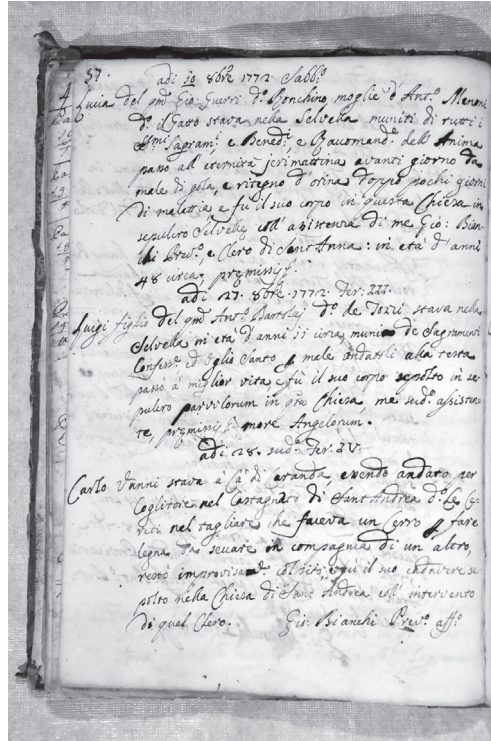 57. adi 10 8bre 1772 Sabbo
Lucia del qm Gio: Guerri do Ronchino moglie d'Anto Menoni
do il Gatto stava nella Selvella muniti di tutti i
Ssmi Sagrami, e Benedi, e Racomande dell'Anima
passò all'eternità jerimattina avanti giorno da
male di gola, e ritegno d'orina doppo pochi giorni
di malattia e fù il suo corpo in questa Chiesa in
sepulcro Selvelle coll'assistenza di me Gio: Bian-
chi Prevo, e Clero di Sant'Anna: in età d'anni
48 circa, premissis
adi 27. 8bre 1772. Fer: III.
Luigi figlio del qm Anto do de Tozzi stava nella
Selvella in età d'anni 11 circa, de Sagramenti
Confesse ed Oglio Santo male andatoli alla testa
passò à miglior vita, e fù il suo corpo sepolto in se-
pulcro parvulorum in qta Chiesa, me sudo assisten-
te, premissis more Angelorum.
adi 28. sudo Fer: IV.
Carlo Vanni stava à Cà di Geranda, essendo andato per
Coglitore nel Castagnato di Sant'Andrea do le Cer-
reti nel tagliare che faceva un Cerro fare
legna da seccare in compagnia di un altro,
restò e fù il suo cadavere se-
polto nella Chiesa di Sant'Andrea coll'intervento
di quel Clero. Gio: Bianchi Prevo affo